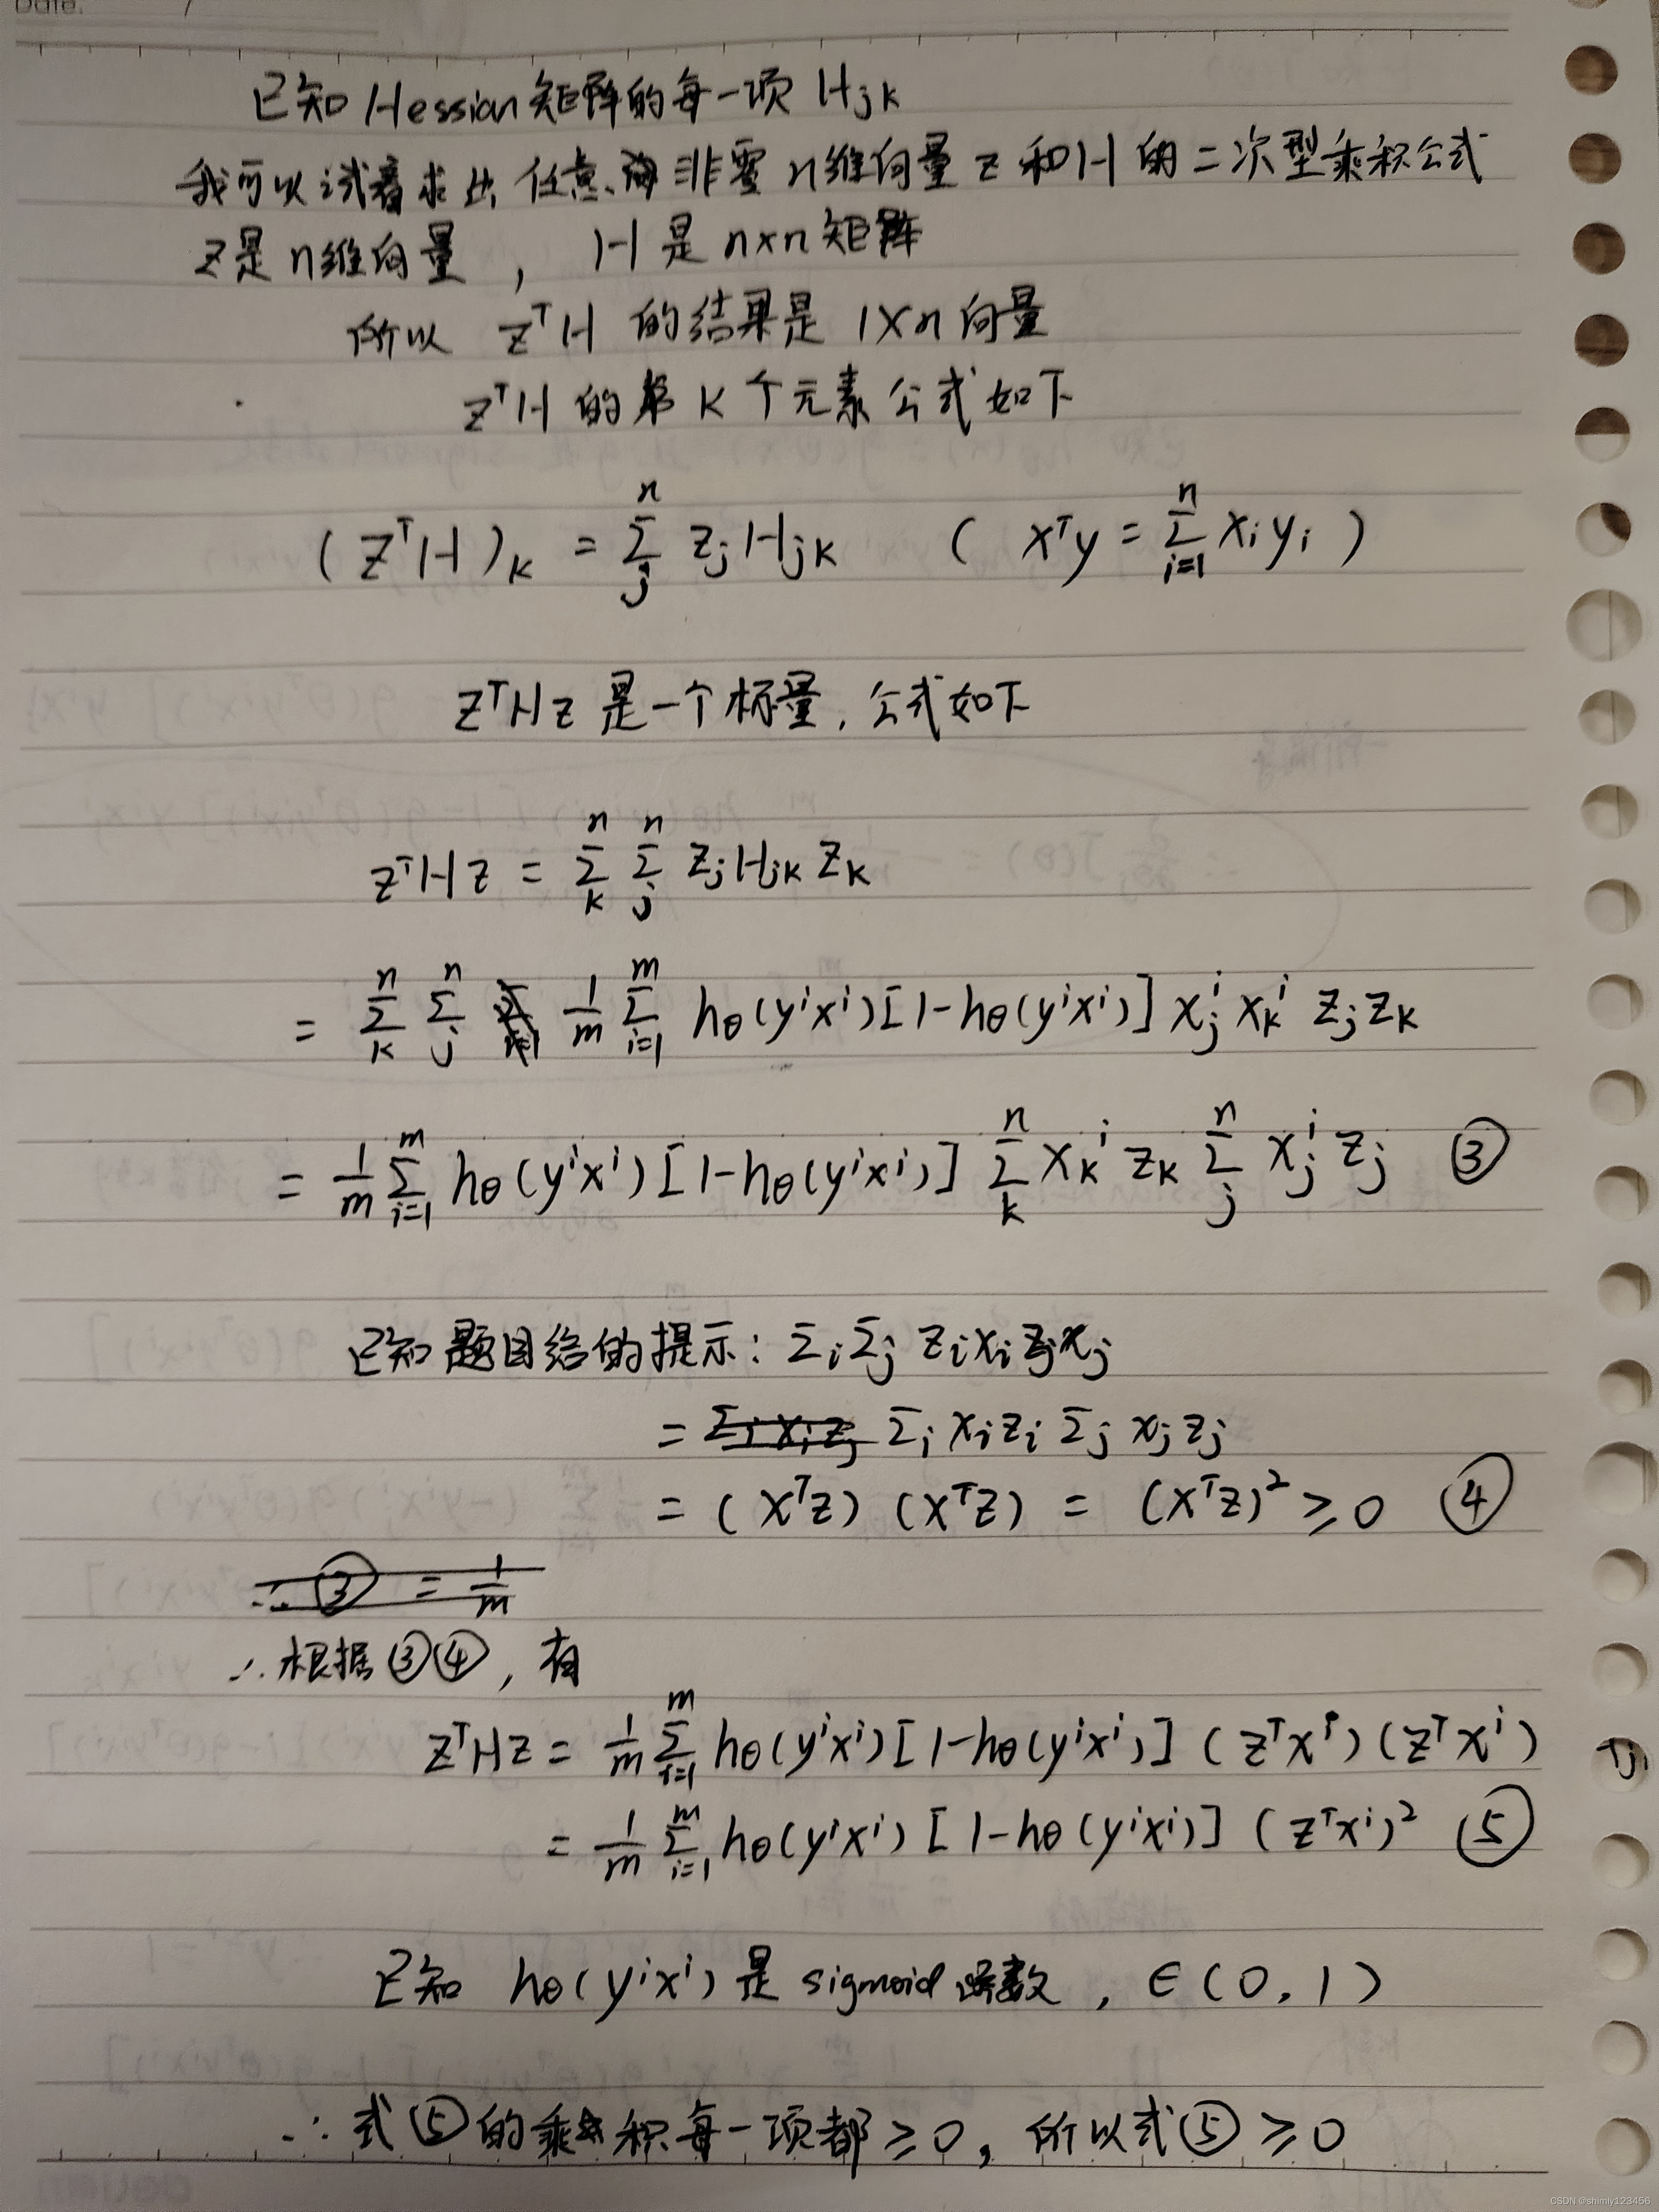 Date. /
已知 Hessian 矩阵的每一项 Hjk
我可以试着求出 任意 非零 n维向量 z 和 H 的二次型乘积公式
z是 n维向量 , H 是 n×n 矩阵
所以 zᵀH 的结果是 1×n 向量
zᵀH 的第 K 个元素公式如下
(zᵀH)ₖ = Σⱼⁿ zⱼHⱼₖ ( xᵀy = Σᵢ₌₁ⁿ xᵢyᵢ )
zᵀHz 是一个标量, 公式如下
zᵀHz = Σₖⁿ Σⱼⁿ zⱼHⱼₖzₖ
= Σₖⁿ Σⱼⁿ 1/m Σᵢ₌₁ᵐ hθ(yⁱxⁱ)[1-hθ(yⁱxⁱ)] xⱼⁱ xₖⁱ zⱼzₖ
= 1/m Σᵢ₌₁ᵐ hθ(yⁱxⁱ)[1-hθ(yⁱxⁱ)] Σₖⁿ xₖⁱ zₖ Σⱼⁿ xⱼⁱ zⱼ ③
已知题目给的提示: Σᵢ Σⱼ zᵢxᵢzⱼxⱼ
= Σᵢ xᵢzᵢ Σⱼ xⱼzⱼ
= (xᵀz) (xᵀz) = (xᵀz)² ≥ 0 ④
∴ ③ = 1/m
∴ 根据③④, 有
zᵀHz = 1/m Σᵢ₌₁ᵐ hθ(yⁱxⁱ)[1-hθ(yⁱxⁱ)] (zᵀxⁱ)(zᵀxⁱ)
= 1/m Σᵢ₌₁ᵐ hθ(yⁱxⁱ)[1-hθ(yⁱxⁱ)] (zᵀxⁱ)² ⑤
已知 hθ(yⁱxⁱ) 是 sigmoid 函数, ∈(0,1)
∴ 式⑤的乘积每一项都≥0, 所以式⑤≥0
CSDN @shimly123456